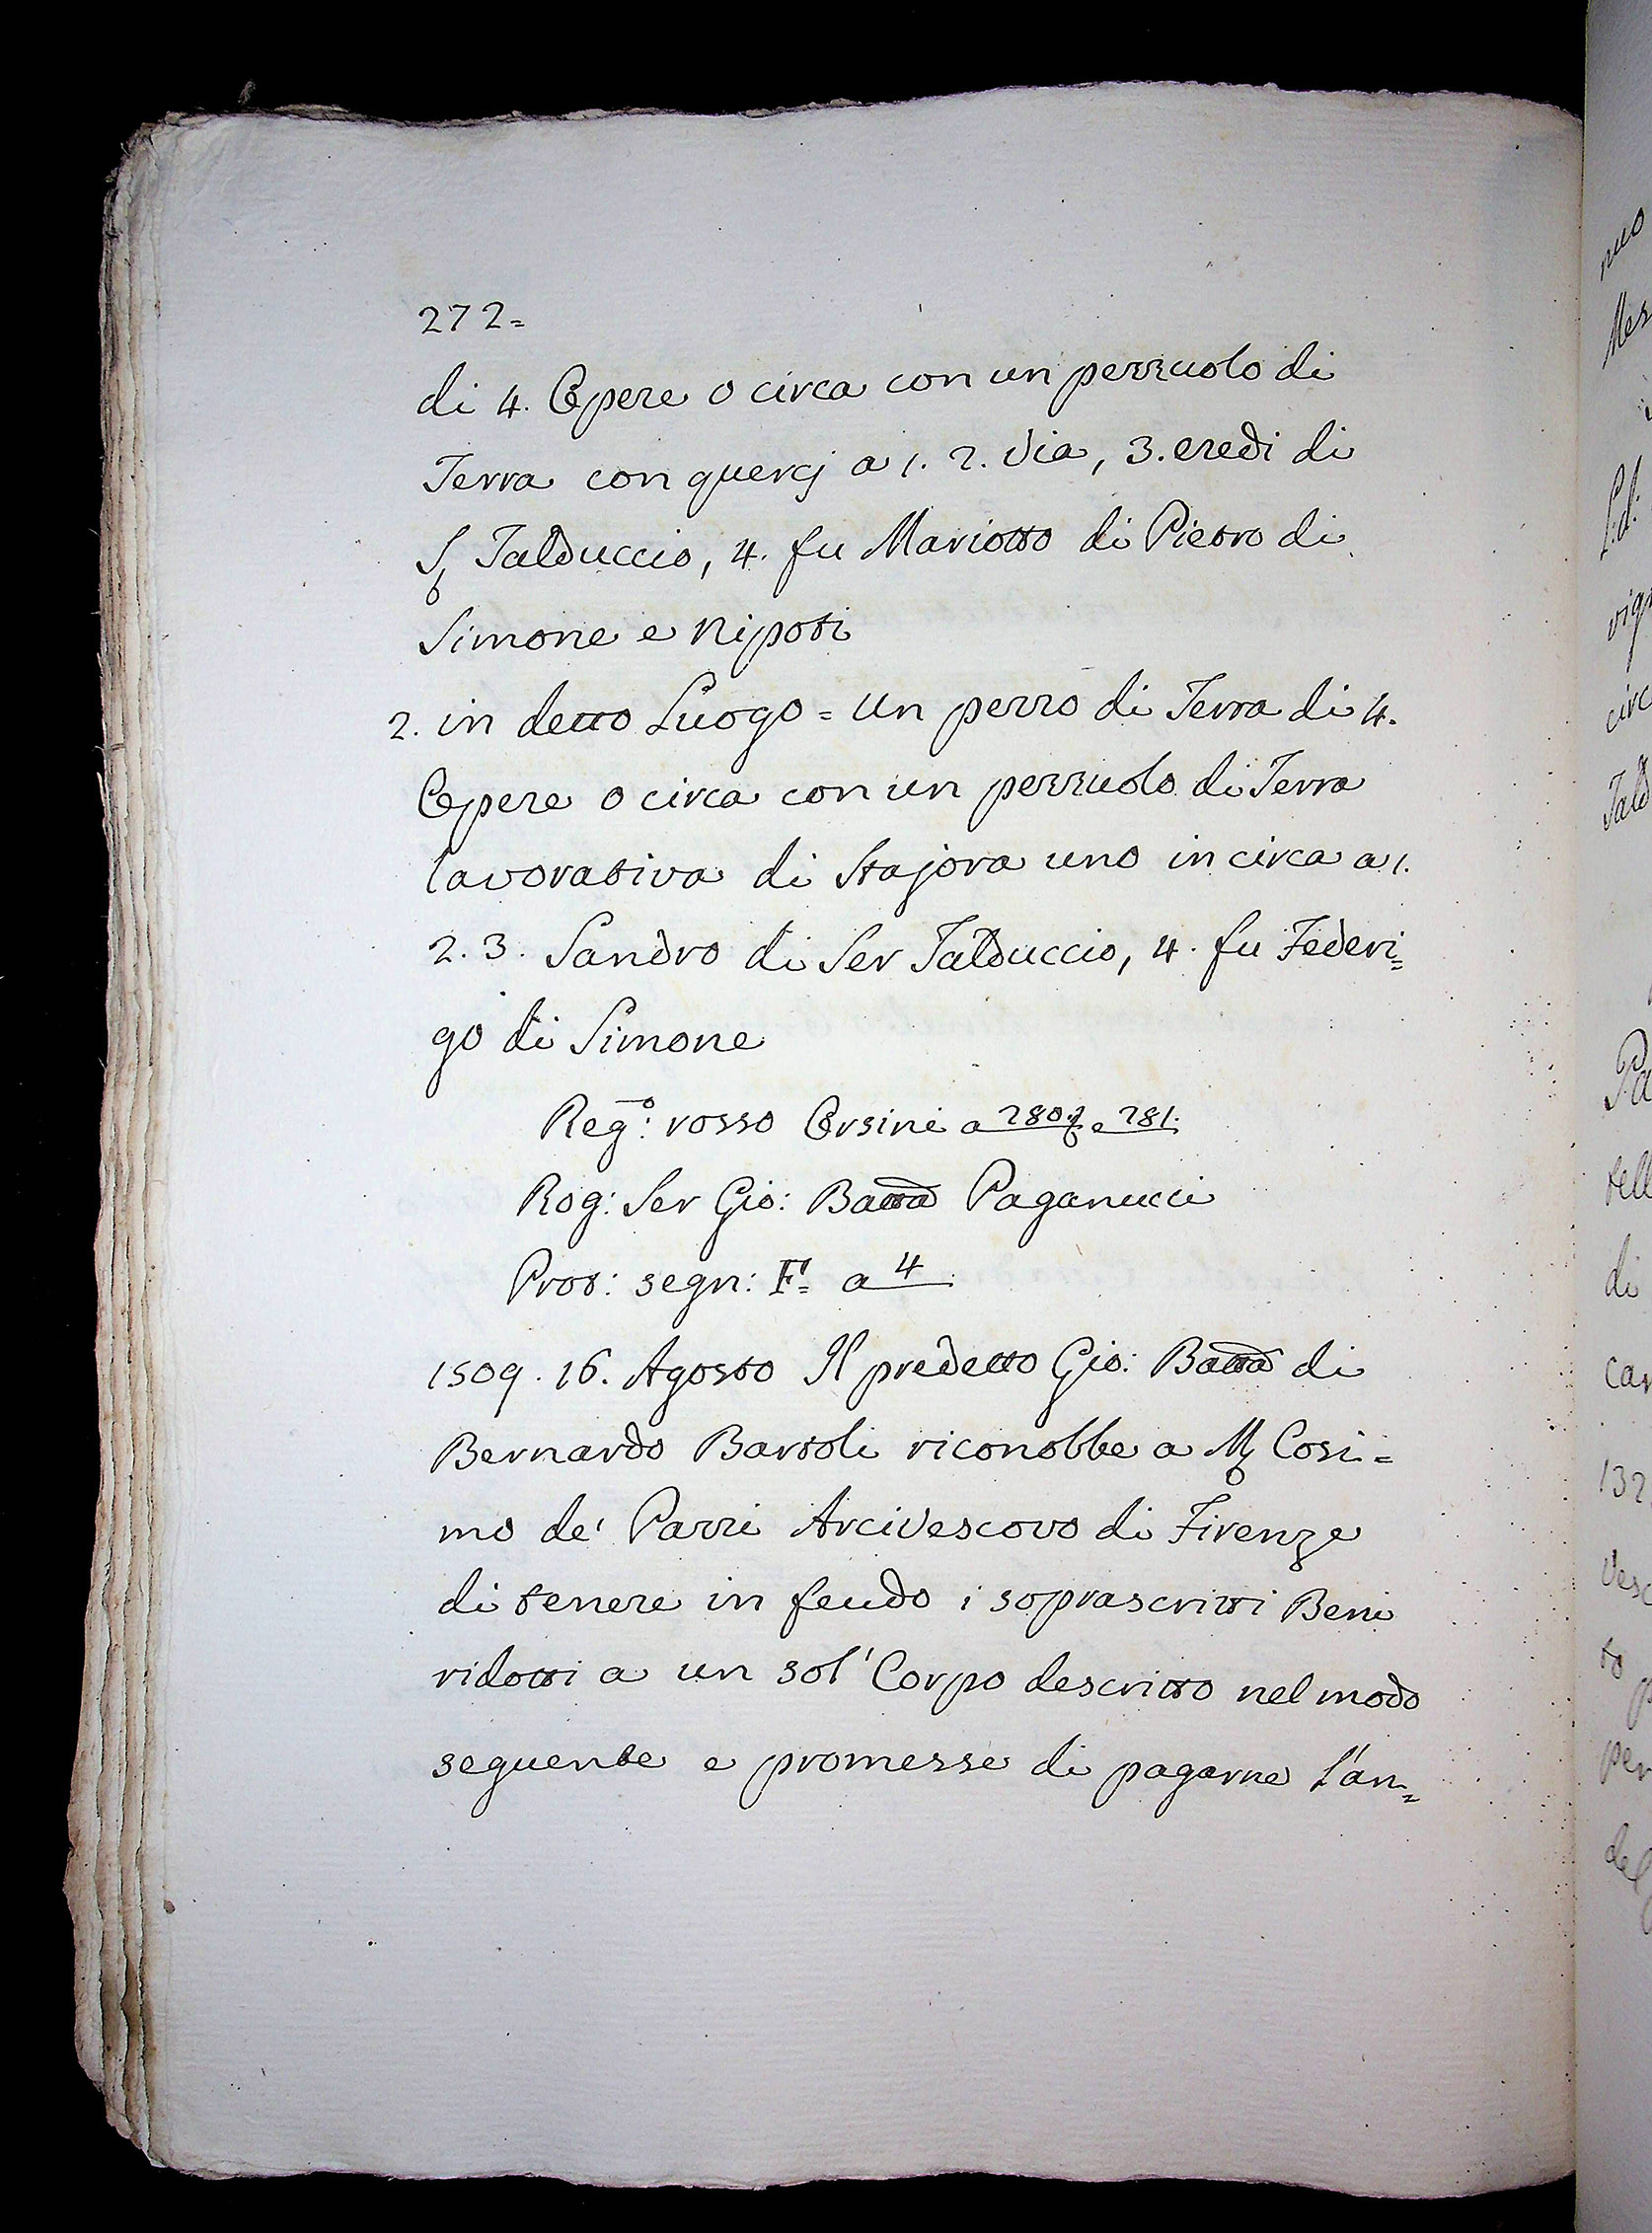 272=
di 4. Opere o circa con un pezzuolo di
Terra con quercj a 1. 2. Via, 3. eredi di
S. Talduccio, 4. fu Mariotto di Pietro di
Simone e Nipoti
2. in detto Luogo = un pezzo di Terra di 4.
Opere o circa con un pezzuolo di Terra
lavorativa di Stajora uno in circa a 1.
2. 3. Sandro di Ser Talduccio, 4. fu Federi=
go di Simone
Reg:º rosso Orsini a 280. e 281.
Rog: Ser Gio: Batta Paganucci
Prot: segn: F= a 4
1509. 16. Agosto Il predetto Gio: Batta di
Bernardo Bartoli riconobbe a M. Cosi=
mo de' Pazzi Arcivescovo di Firenze
di tenere in feudo i soprascritti Beni
ridotti a un sol' Corpo descritto nel modo
seguente e promesse di pagarne l'an=
nuo
Mes
vig
circ
Tald
Pa
tell
di
car
132
Vesc
to
per
del